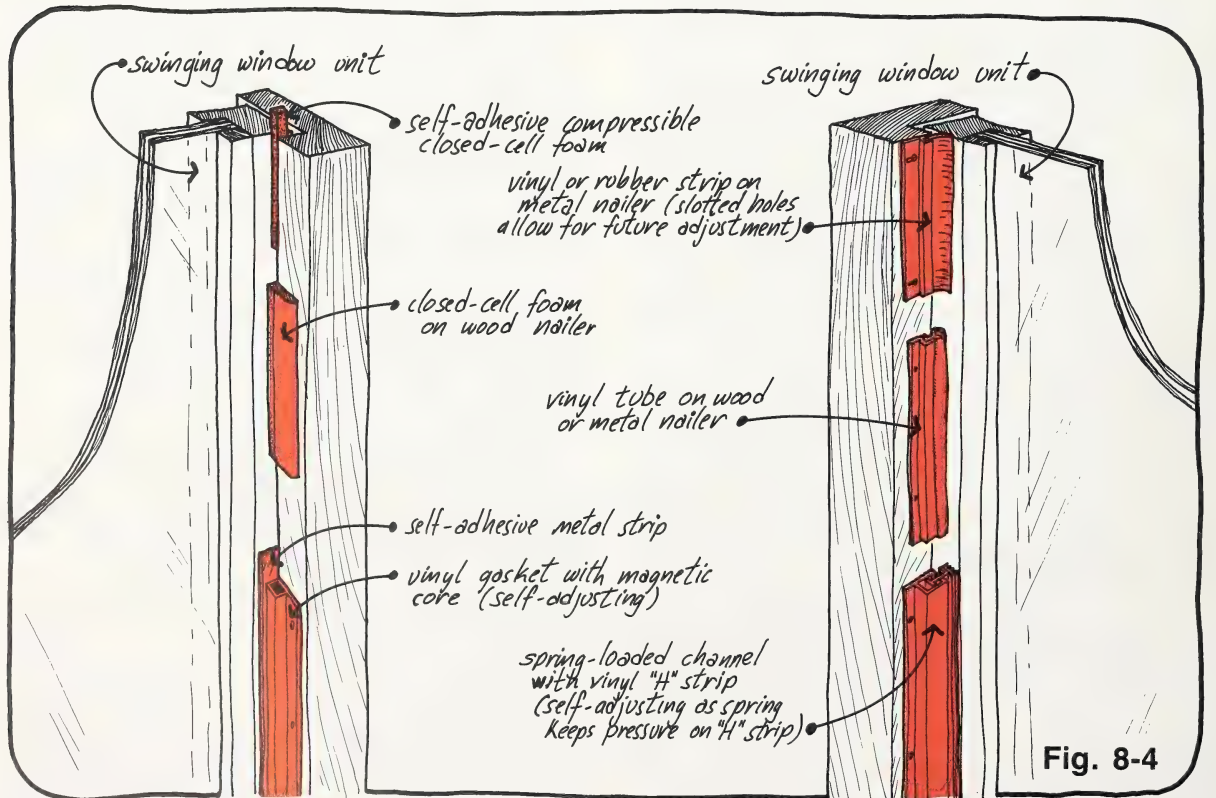 swinging window unit
self-adhesive compressible
closed-cell foam
closed-cell foam
on wood nailer
self-adhesive metal strip
vinyl gasket with magnetic
core (self-adjusting)
swinging window unit
vinyl or rubber strip on
metal nailer (slotted holes
allow for future adjustment)
vinyl tube on wood
or metal nailer
spring-loaded channel
with vinyl "H" strip
(self-adjusting as spring
keeps pressure on "H" strip)
Fig. 8-4